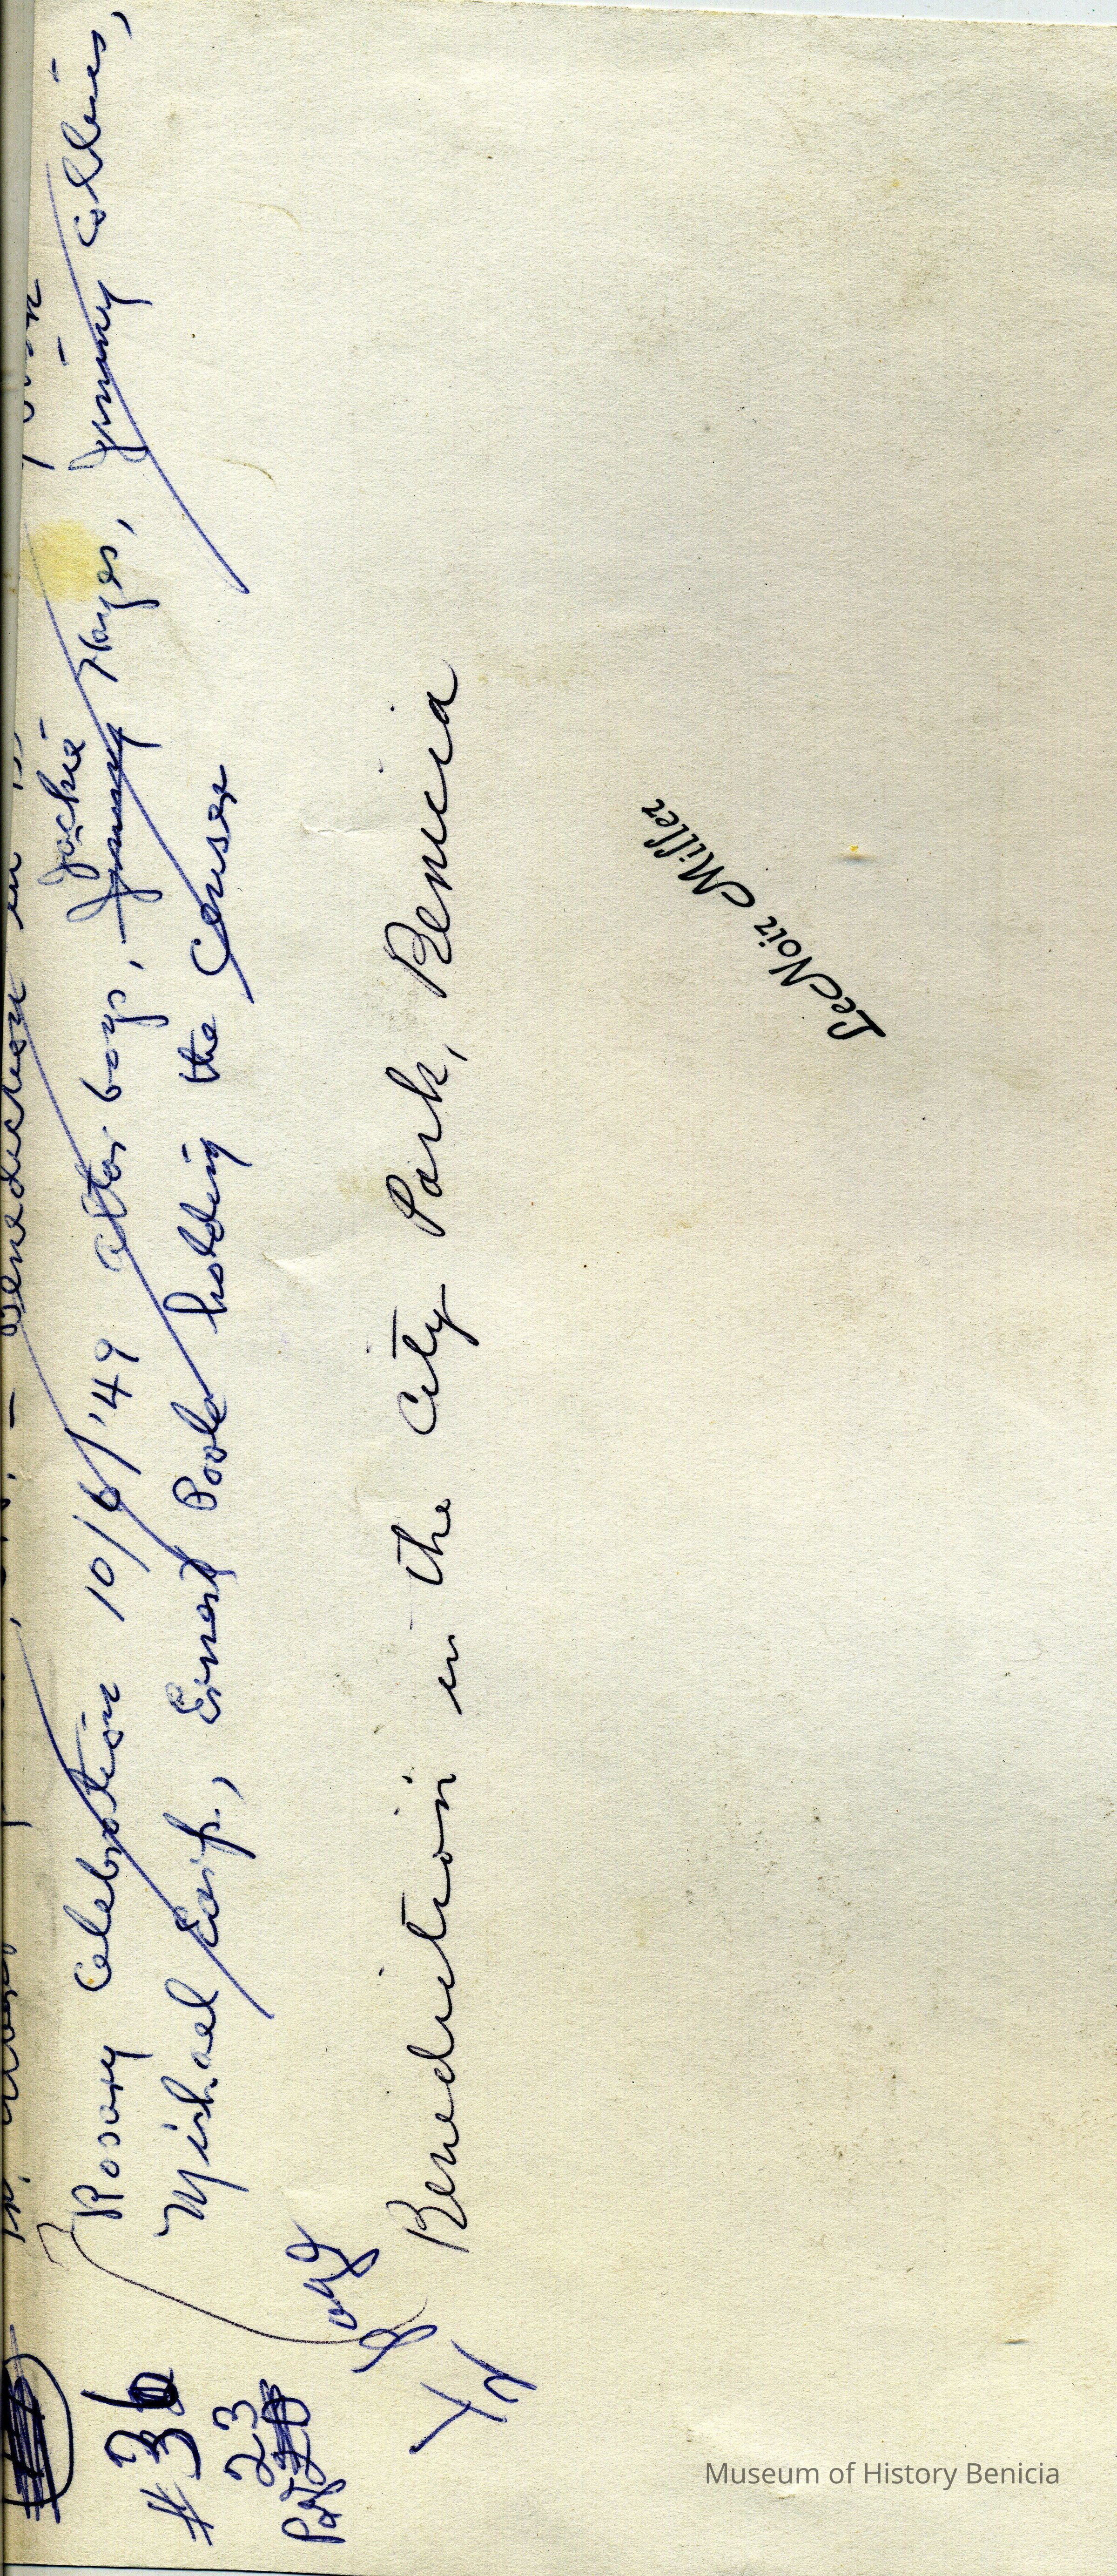 Benediction in
Jackie
Rosary Celebration 10/6/'49 altar boys, Jimmy Hayes, Jimmy Collins,
Michael Earp, Ernest Poole holding the Censer
#36
23
Pg
Benediction in the City Park, Benicia
LeNoir Miller
Museum of History Benicia